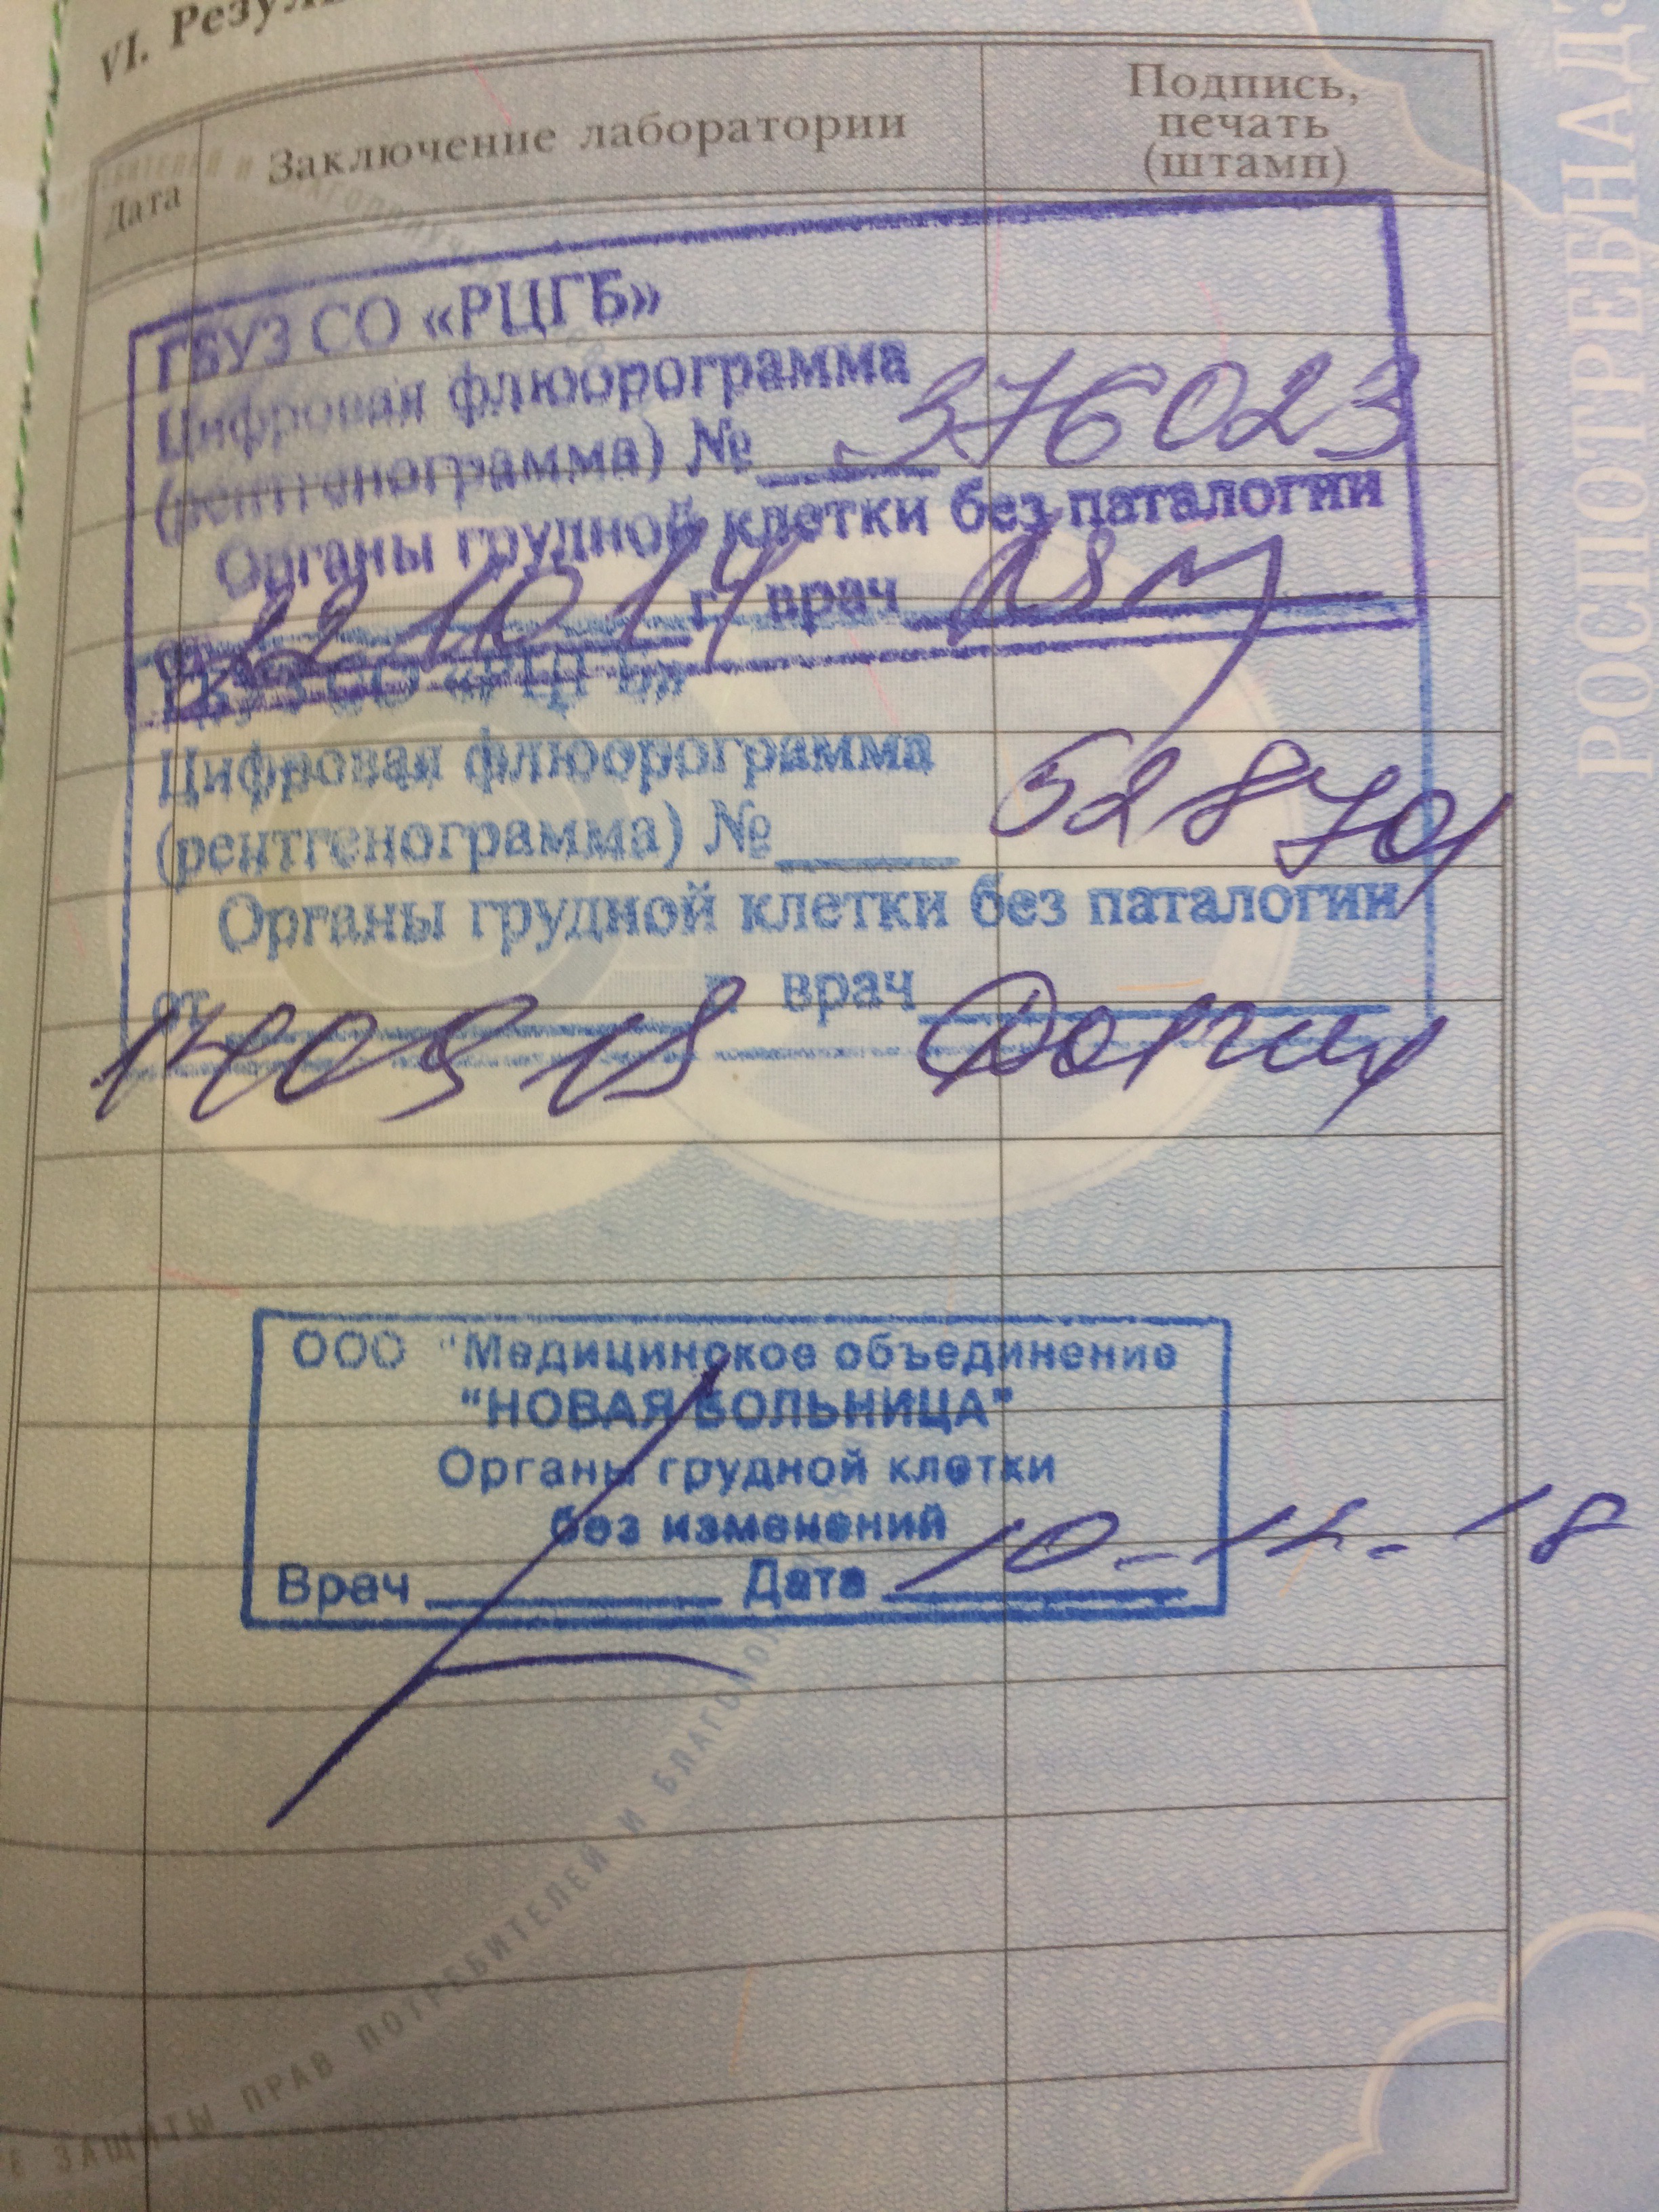 VI.
Дата
Заключение лаборатории
Подпись,
печать
(штамп)
ГБУЗ СО «РЦГБ»
Цифровая флюорограмма
(рентгенограмма) № 376023
Органы грудной клетки без паталогии
от 22 10 14 г. врач
ГБУЗ СО «РЦГБ»
Цифровая флюорограмма
(рентгенограмма) № 528701
Органы грудной клетки без паталогии
от г. врач
ООО "Медицинское объединение
"НОВАЯ БОЛЬНИЦА"
Органы грудной клетки
без изменений
Врач Дата 10-11-18
Е ЗАЩИТЫ ПРАВ ПОТРЕБИТЕЛЕЙ И БЛАГОПОЛ
РОСПОТРЕБНАДЗ